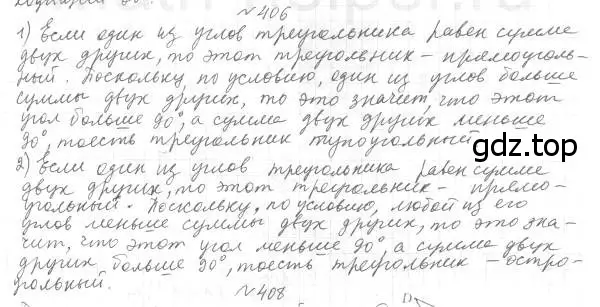 №406
1) Если один из углов треугольника равен сумме
двух других, то этот треугольник – прямоуголь-
ный. Поскольку по условию, один из углов больше
суммы двух других, то это значит, что этот
угол больше 90°, а сумма двух других меньше
90°, тоесть треугольник тупоугольный.
gdz.top
2) Если один из углов треугольника равен сумме
двух других, то этот треугольник – прямо-
угольный. Поскольку, по условию, любой из его
углов меньше суммы двух других, то это зна-
чит, что этот угол меньше 90°, а сумма двух
других больше 90°, тоесть треугольник – остро-
гольный.
№408